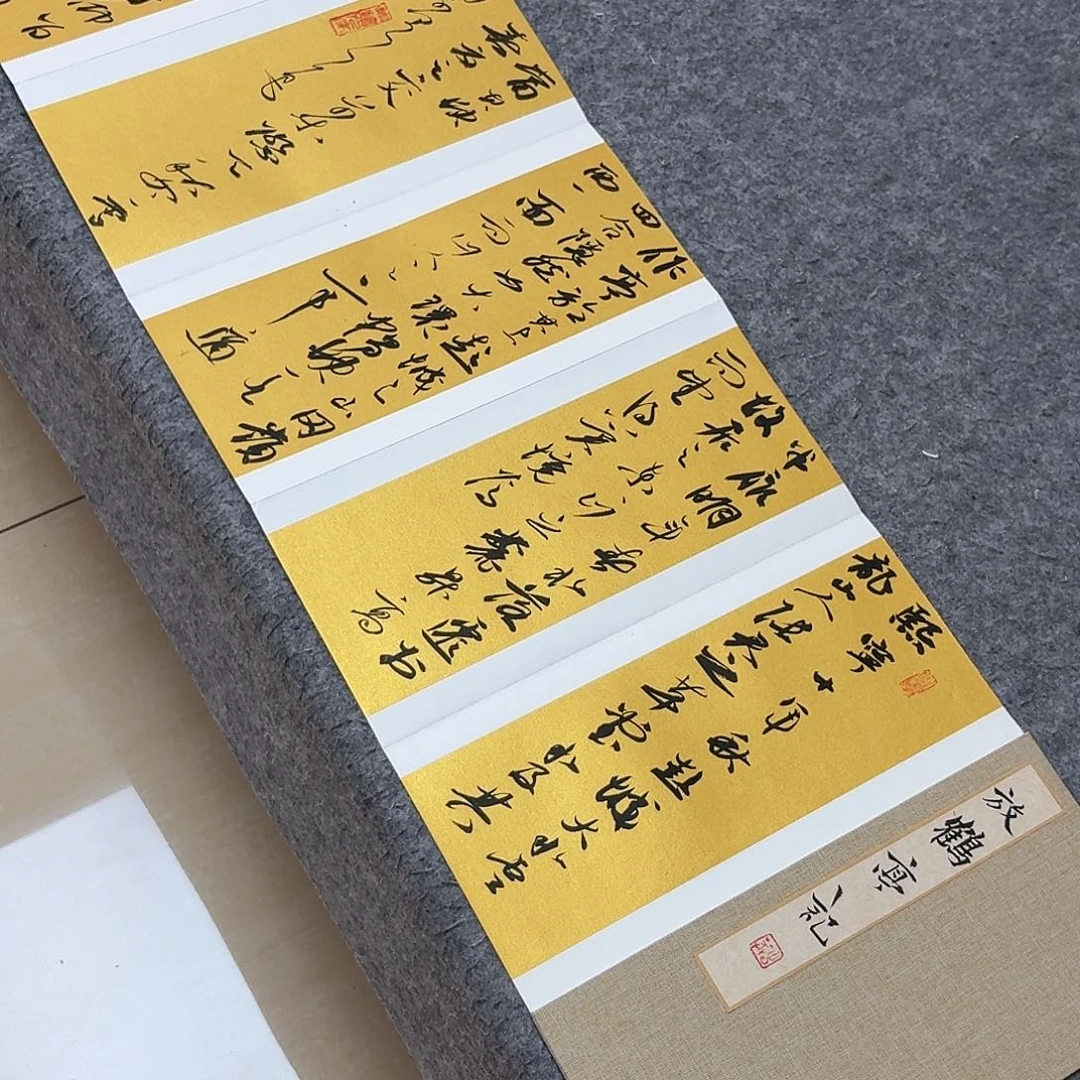 放鶴亭記
熙寧十年秋彭城大水雲
龍山人張君之草堂水及其
半扉明年春水落遷於
故居之東東山之麓升高
而望得異境焉
作亭於其上彭城之山岡嶺
四合隱然如大環獨缺其
西一面而山人之亭適
當其缺
春夏之交草木際天秋冬雪